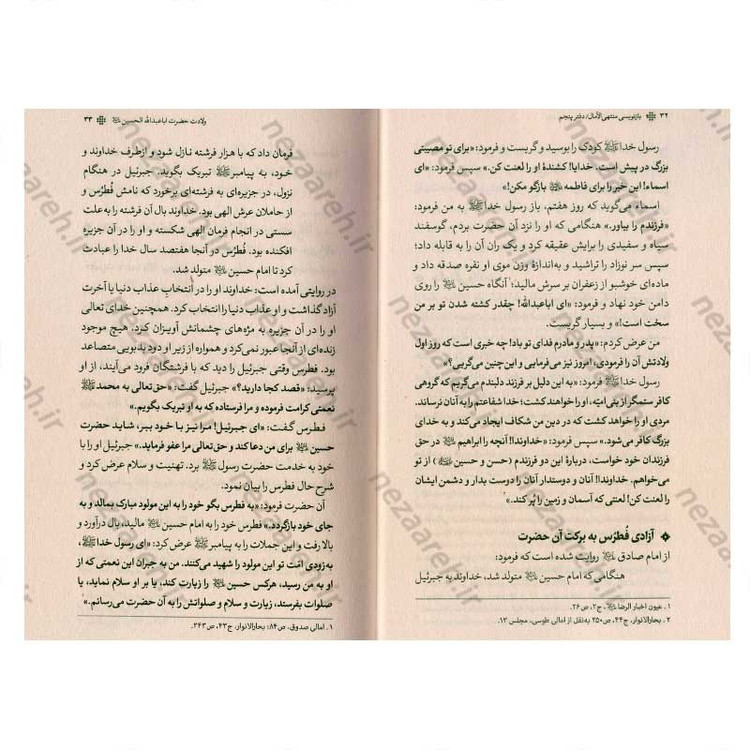 ۳۲ بازنویسی منتهی الآمال/ دفتر پنجم
رسول خدا ﷺ کودک را بوسید و گریست و فرمود: «برای تو مصیبتی
بزرگ در پیش است. خدایا! کشندهٔ او را لعنت کن.» سپس فرمود: «ای
اسماء! این خبر را برای فاطمه بازگو مکن!»
اسماء می‌گوید که روز هفتم، باز رسول خدا ﷺ به من فرمود:
«فرزندم را بیاور.» هنگامی که او را نزد آن حضرت بردم، گوسفند
سیاه و سفیدی را برایش عقیقه کرد و یک ران آن را به قابله داد؛
سپس سر نوزاد را تراشید و به‌اندازهٔ وزن موی او نقره صدقه داد و
ماده‌ای خوشبو از زعفران بر سرش مالید؛ آنگاه حسین را روی
دامن خود نهاد و فرمود: «ای اباعبدالله! چقدر کشته شدن تو بر من
سخت است!» و بسیار گریست.
من عرض کردم: «پدر و مادرم فدای تو باد! چه خبری است که روز اول
ولادتش آن را فرمودی، امروز نیز می‌فرمایی و این‌چنین می‌گریی؟»
رسول خدا ﷺ فرمود: «به این دلیل بر فرزند دلبندم می‌گریم که گروهی
کافر ستمگر از بنی امیّه، او را خواهند کشت؛ خدا شفاعتم را به آنان نرساند.
مردی او را خواهد کشت که در دین من شکاف ایجاد می‌کند و به خدای
بزرگ کافر می‌شود.» سپس فرمود: «خداوندا! آنچه را ابراهیم در حق
فرزندان خود خواست، دربارهٔ این دو فرزندم (حسن و حسین) از تو
می‌خواهم. خداوندا! آنان و دوستدار آنان را دوست بدار و دشمن ایشان
را لعنت کن! لعنتی که آسمان و زمین را پُر کند.»
آزادی فُطرُس به برکت آن حضرت
از امام صادق روایت شده است که فرمود:
هنگامی که امام حسین متولد شد، خداوند به جبرئیل
۱. عیون اخبار الرضا، ج۲، ص۲۶.
۲. بحارالانوار، ج۴۴، ص۲۵۰ به نقل از امالی طوسی، مجلس ۱۳.
ولادت حضرت اباعبدالله الحسین ۳۳
فرمان داد که با هزار فرشته نازل شود و ازطرف خداوند و
خود، به پیامبر ﷺ تبریک بگوید. جبرئیل در هنگام
نزول، در جزیره‌ای به فرشته‌ای برخورد که نامش فُطرُس و
از حاملان عرش الهی بود. خداوند بال آن فرشته را به‌علت
سستی در انجام فرمان الهی شکسته و او را در آن جزیره
افکنده بود. فُطرُس در آنجا هفتصد سال خدا را عبادت
کرد تا امام حسین متولد شد.
در روایتی آمده است: خداوند او را در انتخابِ عذاب دنیا یا آخرت
آزاد گذاشت و او عذاب دنیا را انتخاب کرد. همچنین خدای تعالی
او را در آن جزیره به مژه‌های چشمانش آویزان کرد. هیچ موجود
زنده‌ای از آنجا عبور نمی‌کرد و همواره از زیر او دود بدبویی متصاعد
بود. فطرس وقتی جبرئیل را دید که با فرشتگان فرود می‌آیند، از او
پرسید: «قصد کجا دارید؟» جبرئیل گفت: «حق‌تعالی به محمد ﷺ
نعمتی کرامت فرموده و مرا فرستاده که به او تبریک بگویم.»
فطرس گفت: «ای جبرئیل! مرا نیز با خود ببر، شاید حضرت
حسین برای من دعا کند و حق‌تعالی مرا عفو فرماید.» جبرئیل او را با
خود به خدمت حضرت رسول ﷺ برد. تهنیت و سلام عرض کرد و
شرح حال فطرس را بیان نمود.
آن حضرت فرمود: «به فطرس بگو خود را به این مولود مبارک بمالد و به
جای خود بازگردد.» فطرس خود را به امام حسین مالید، بال درآورد و
بالا رفت و این جملات را به پیامبر ﷺ عرض کرد: «ای رسول خدا ﷺ،
به‌زودی امّت تو این مولود را شهید می‌کنند. من به جبران این نعمتی که از
او به من رسید، هرکس حسین را زیارت کند، یا بر او سلام نماید، یا
صلوات بفرستد، زیارت و سلام و صلواتش را به آن حضرت می‌رسانم.»
۱. امالی صدوق، ص۸۴؛ بحارالانوار، ج۴۳، ص۲۴۳.
nezaareh.ir